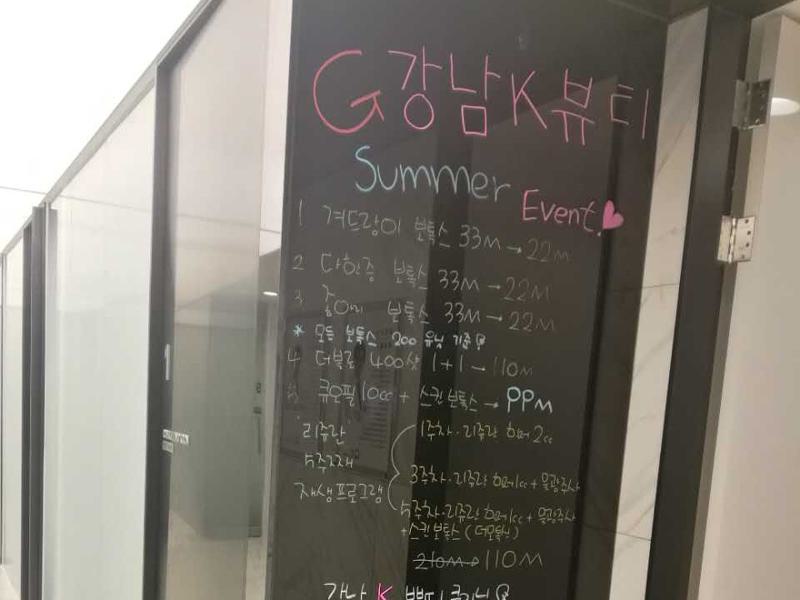 G강남K뷰티
Summer Event
1 겨드랑이 보톡스 33M → 22M
2 다한증 보톡스 33M → 22M
3 보톡스 33M → 22M
* 모든 보톡스 200 유닛 기준
4 더블로 400샷 1+1 → 110M
5 큐오필 10cc + 스킨보톡스 → PPM
리쥬란 1주차·리쥬란 2cc
5주차
3주차·리쥬란 1cc + 물광주사
재생프로그램
5주차·리쥬란 1cc + 물광주사
+스킨보톡스
210M → 110M
강남 K